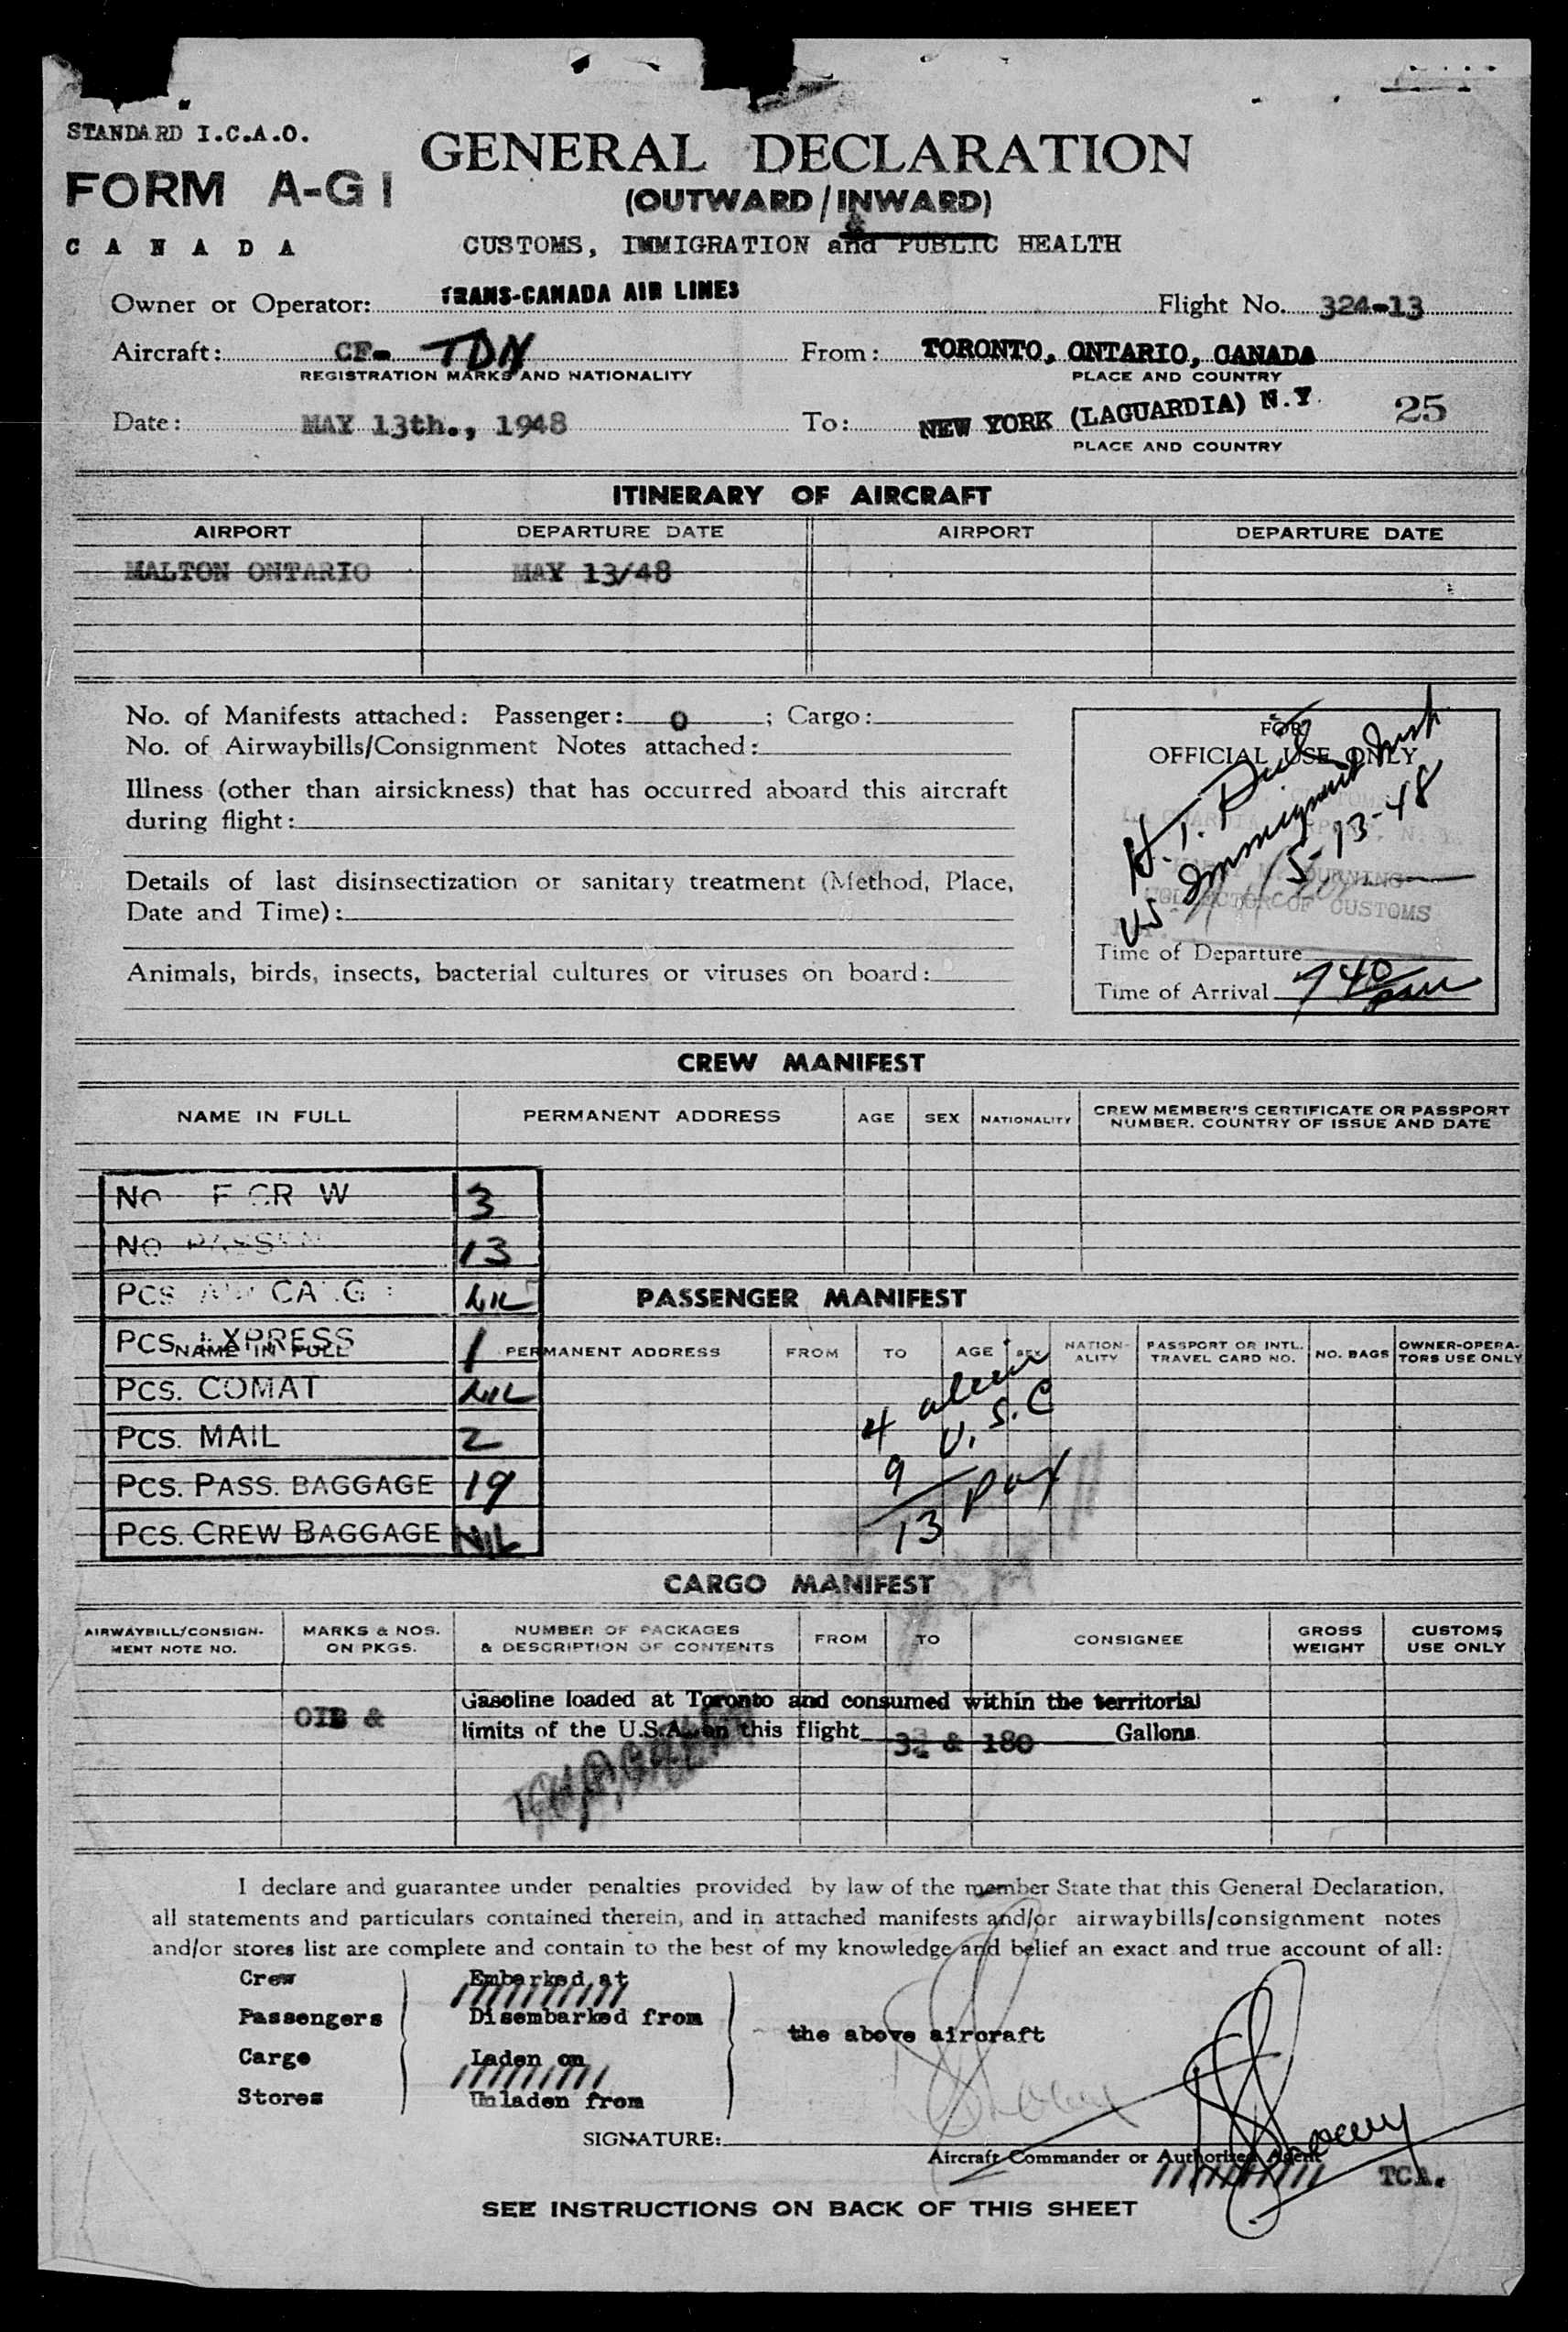 STANDARD I.C.A.O.
FORM A-G1
GENERAL DECLARATION
(OUTWARD/INWARD)
CANADA
CUSTOMS, IMMIGRATION and PUBLIC HEALTH
&
Owner or Operator: TRANS-CANADA AIR LINES
Flight No. 324-13
Aircraft: CF- TDN
REGISTRATION MARKS AND NATIONALITY
From: TORONTO, ONTARIO, CANADA
PLACE AND COUNTRY
Date: MAY 13th., 1948
To: NEW YORK (LAGUARDIA) N.Y.
PLACE AND COUNTRY
25
ITINERARY OF AIRCRAFT
AIRPORT DEPARTURE DATE AIRPORT DEPARTURE DATE
MALTON ONTARIO MAY 13/48
No. of Manifests attached: Passenger: 0 ; Cargo:
No. of Airwaybills/Consignment Notes attached:
Illness (other than airsickness) that has occurred aboard this aircraft
during flight:
Details of last disinsectization or sanitary treatment (Method, Place,
Date and Time):
Animals, birds, insects, bacterial cultures or viruses on board:
FOR
OFFICIAL USE ONLY
H. T.
US Immigrant Insp
5-13-48
COLLECTOR OF CUSTOMS
Time of Departure
Time of Arrival 740 pm
CREW MANIFEST
NAME IN FULL PERMANENT ADDRESS AGE SEX NATIONALITY CREW MEMBER'S CERTIFICATE OR PASSPORT
NUMBER, COUNTRY OF ISSUE AND DATE
No F CR W 3
No PASSEN 13
PCS CA G NIL
PCS. EXPRESS 1
PCS. COMAT NIL
PCS. MAIL 2
PCS. PASS. BAGGAGE 19
PCS. CREW BAGGAGE NIL
PASSENGER MANIFEST
NAME IN FULL PERMANENT ADDRESS FROM TO AGE SEX NATION-
ALITY PASSPORT OR INTL.
TRAVEL CARD NO. NO. BAGS OWNER-OPERA-
TORS USE ONLY
4 alien
9 U.S.C
13 pax
CARGO MANIFEST
AIRWAYBILL/CONSIGN-
MENT NOTE NO. MARKS & NOS.
ON PKGS. NUMBER OF PACKAGES
& DESCRIPTION OF CONTENTS FROM TO CONSIGNEE GROSS
WEIGHT CUSTOMS
USE ONLY
OIL & Gasoline loaded at Toronto and consumed within the territorial
limits of the U.S.A. on this flight 32 & 180 Gallons.
I declare and guarantee under penalties provided by law of the member State that this General Declaration,
all statements and particulars contained therein, and in attached manifests and/or airwaybills/consignment notes
and/or stores list are complete and contain to the best of my knowledge and belief an exact and true account of all:
Crew Embarked at
Passengers Disembarked from
the above aircraft
Cargo Laden on
Stores Unladen from
SIGNATURE:
Aircraft Commander or Authorized Agent
TCA.
SEE INSTRUCTIONS ON BACK OF THIS SHEET